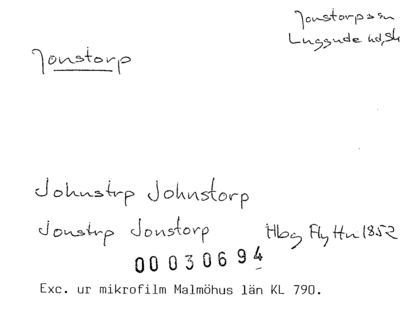 Jonstorps sn
Luggude hd, Sk
Jonstorp
Johnstrp Johnstorp
Jonstrp Jonstorp Hbg Fly Hn 1852
00030694
Exc. ur mikrofilm Malmöhus län KL 790.